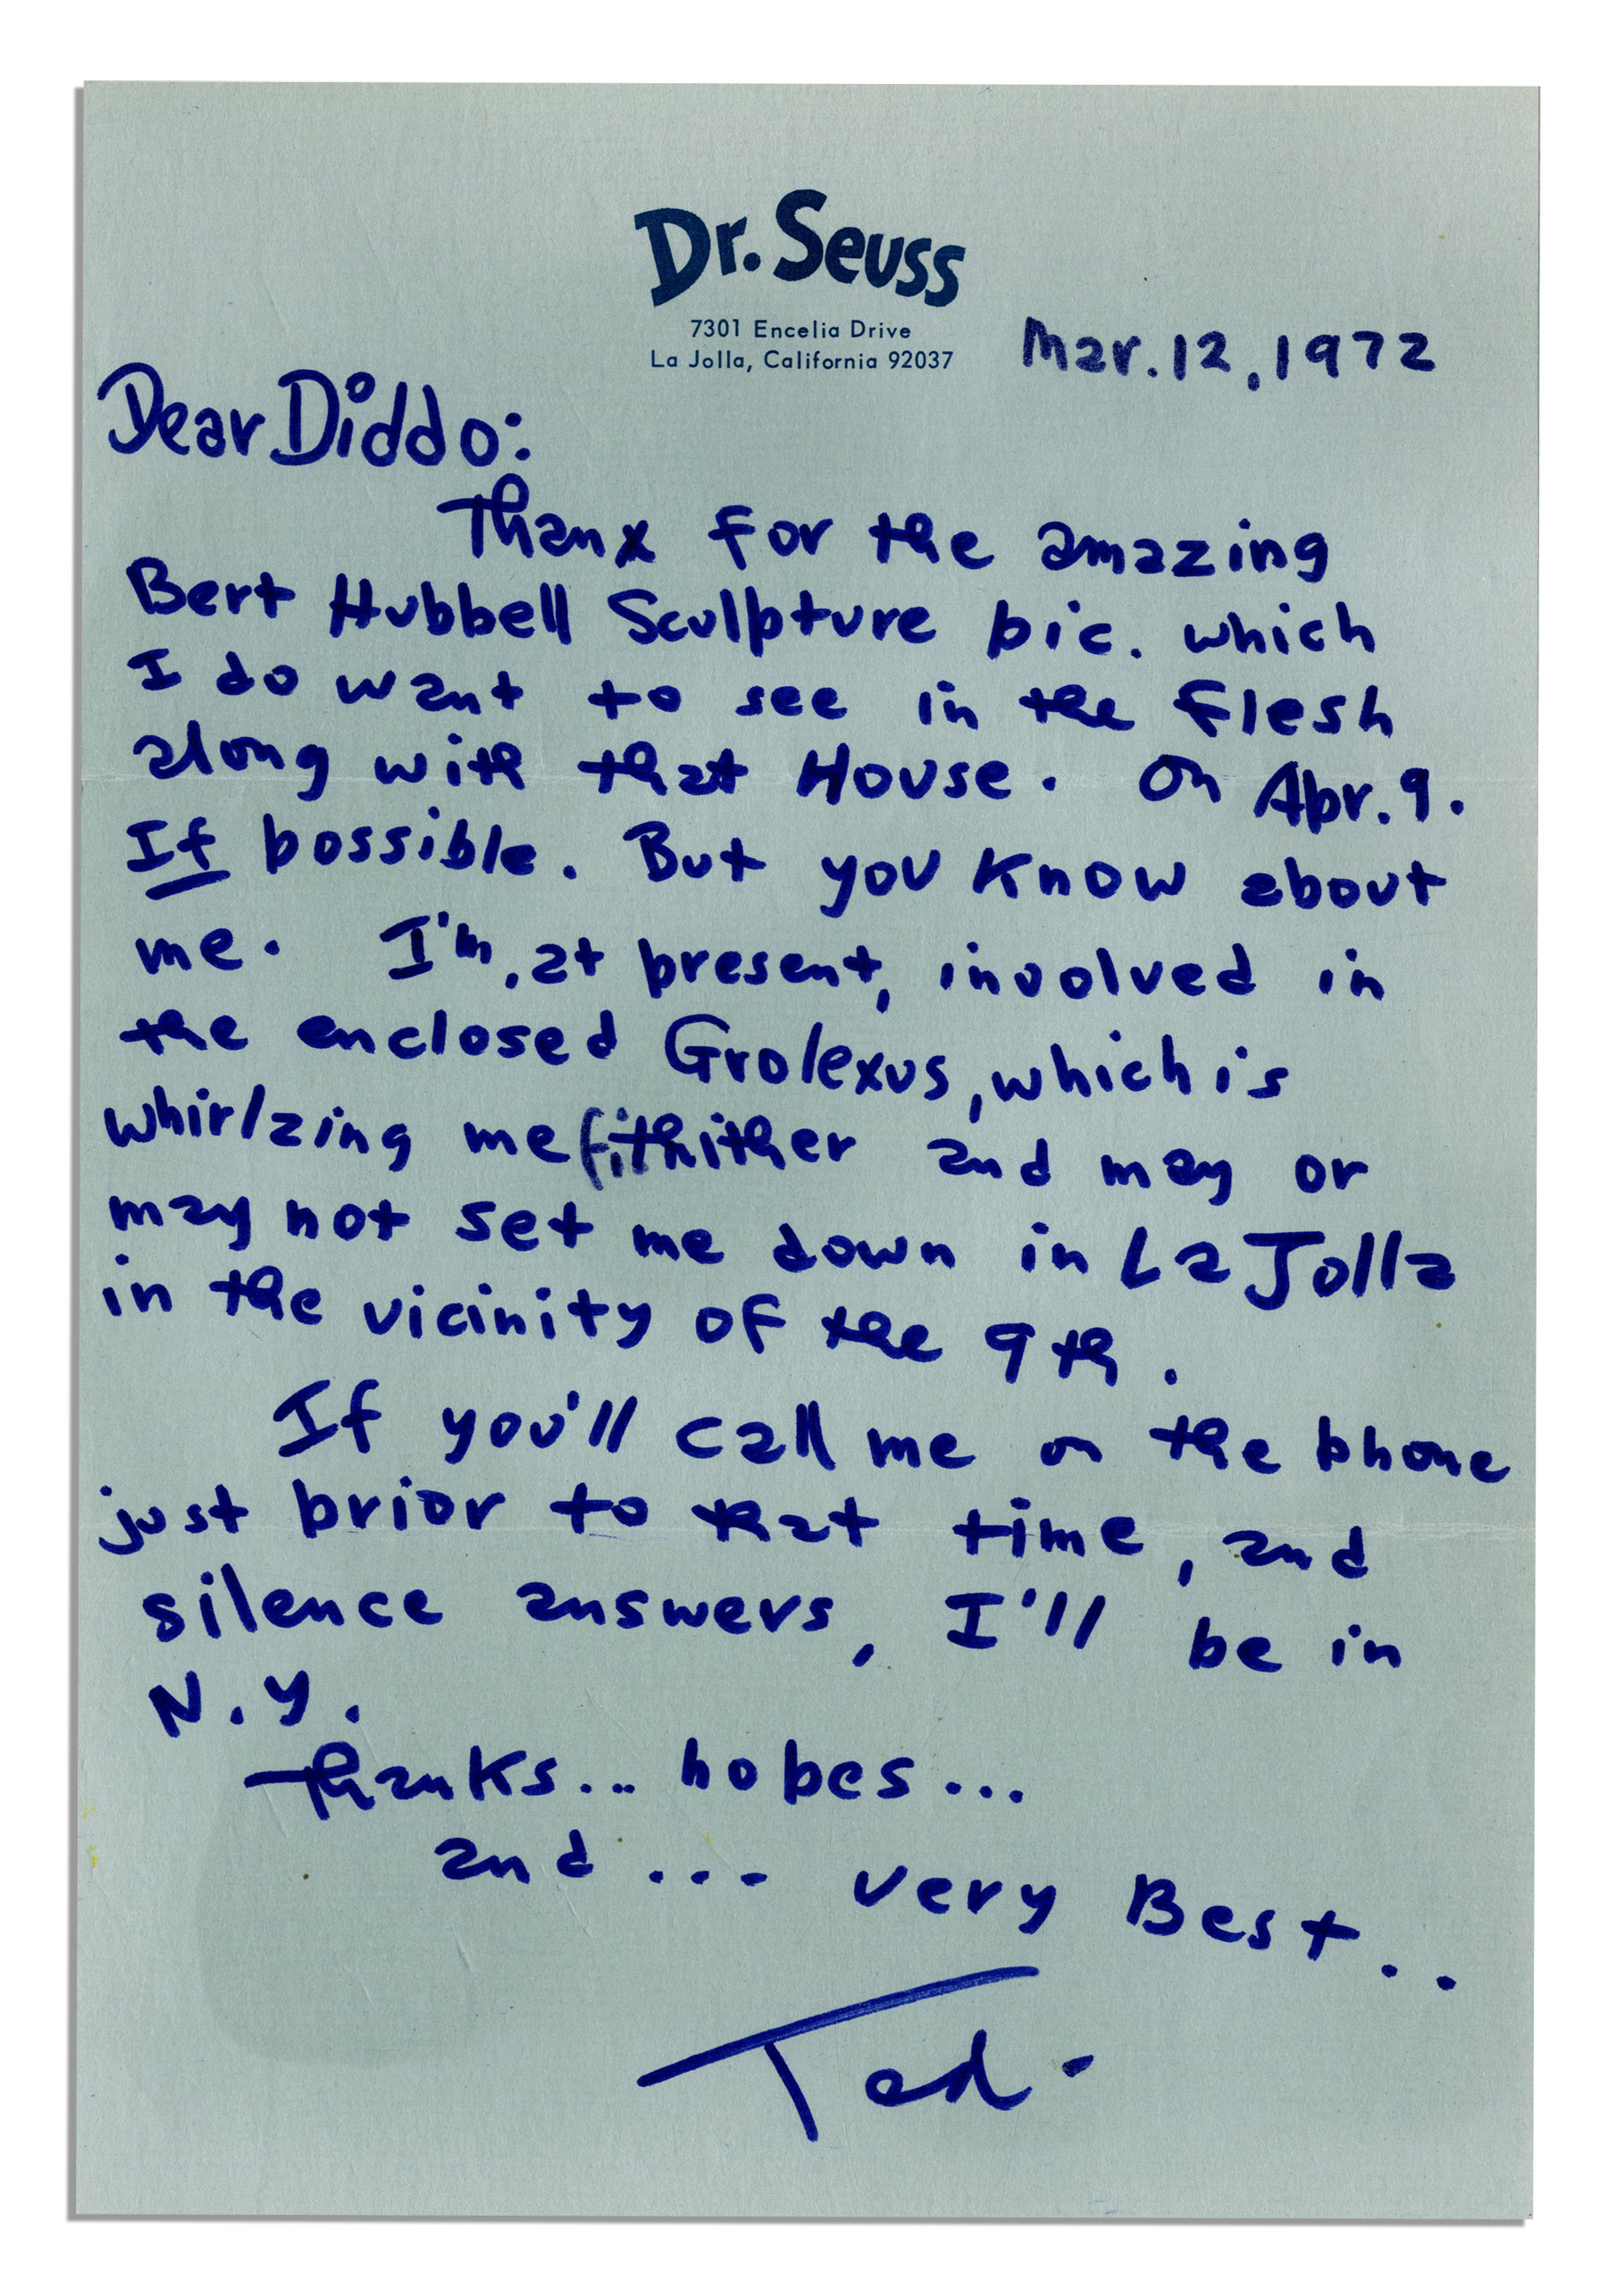 Dr. Seuss
7301 Encelia Drive
La Jolla, California 92037
Mar. 12, 1972
Dear Diddo:
Thanx for the amazing
Bert Hubbell Sculpture pic. which
I do want to see in the flesh
along with that House. On Apr. 9.
If possible. But you know about
me. I'm, at present, involved in
the enclosed Grolexus, which is
whirlzing me fithither and may or
may not set me down in La Jolla
in the vicinity of the 9th.
If you'll call me on the phone
just prior to that time, and
silence answers, I'll be in
N.Y.
Thanks... hopes...
and... very Best..
Ted-